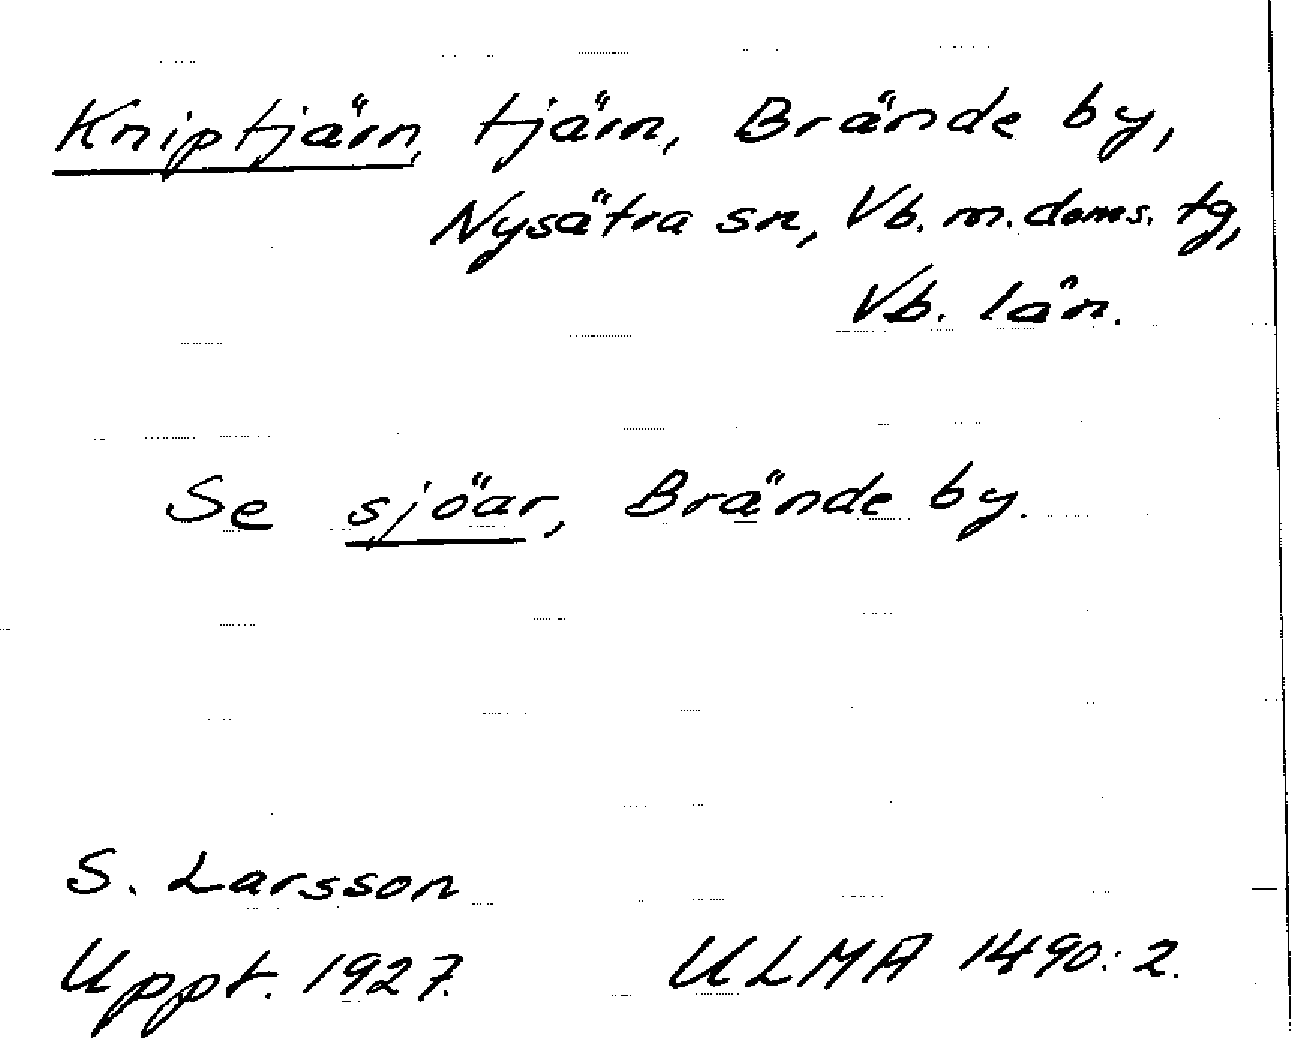 Kniptjärn, tjärn, Brände by,
Nysätra sn, Vb. m. doms. tg,
Vb. län.
Se sjöar, Brände by.
S. Larsson
Uppt. 1927. ULMA 1490:2.